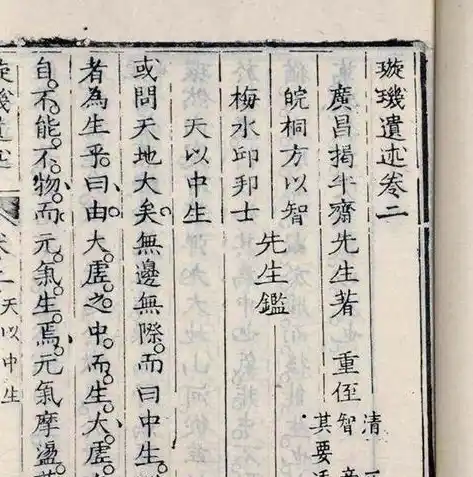 璇璣遺述卷二
廣昌揭半齋先生著 重侄
清
智
其要
皖桐方以智
先生鑑
梅水邱邦士
天以中生
或問天地大矣無邊無際而曰中生
者為生乎曰由大虛之中而生大虛
自不能不物而元氣生焉元氣摩盪
璇璣遺述
卷二 天以中生